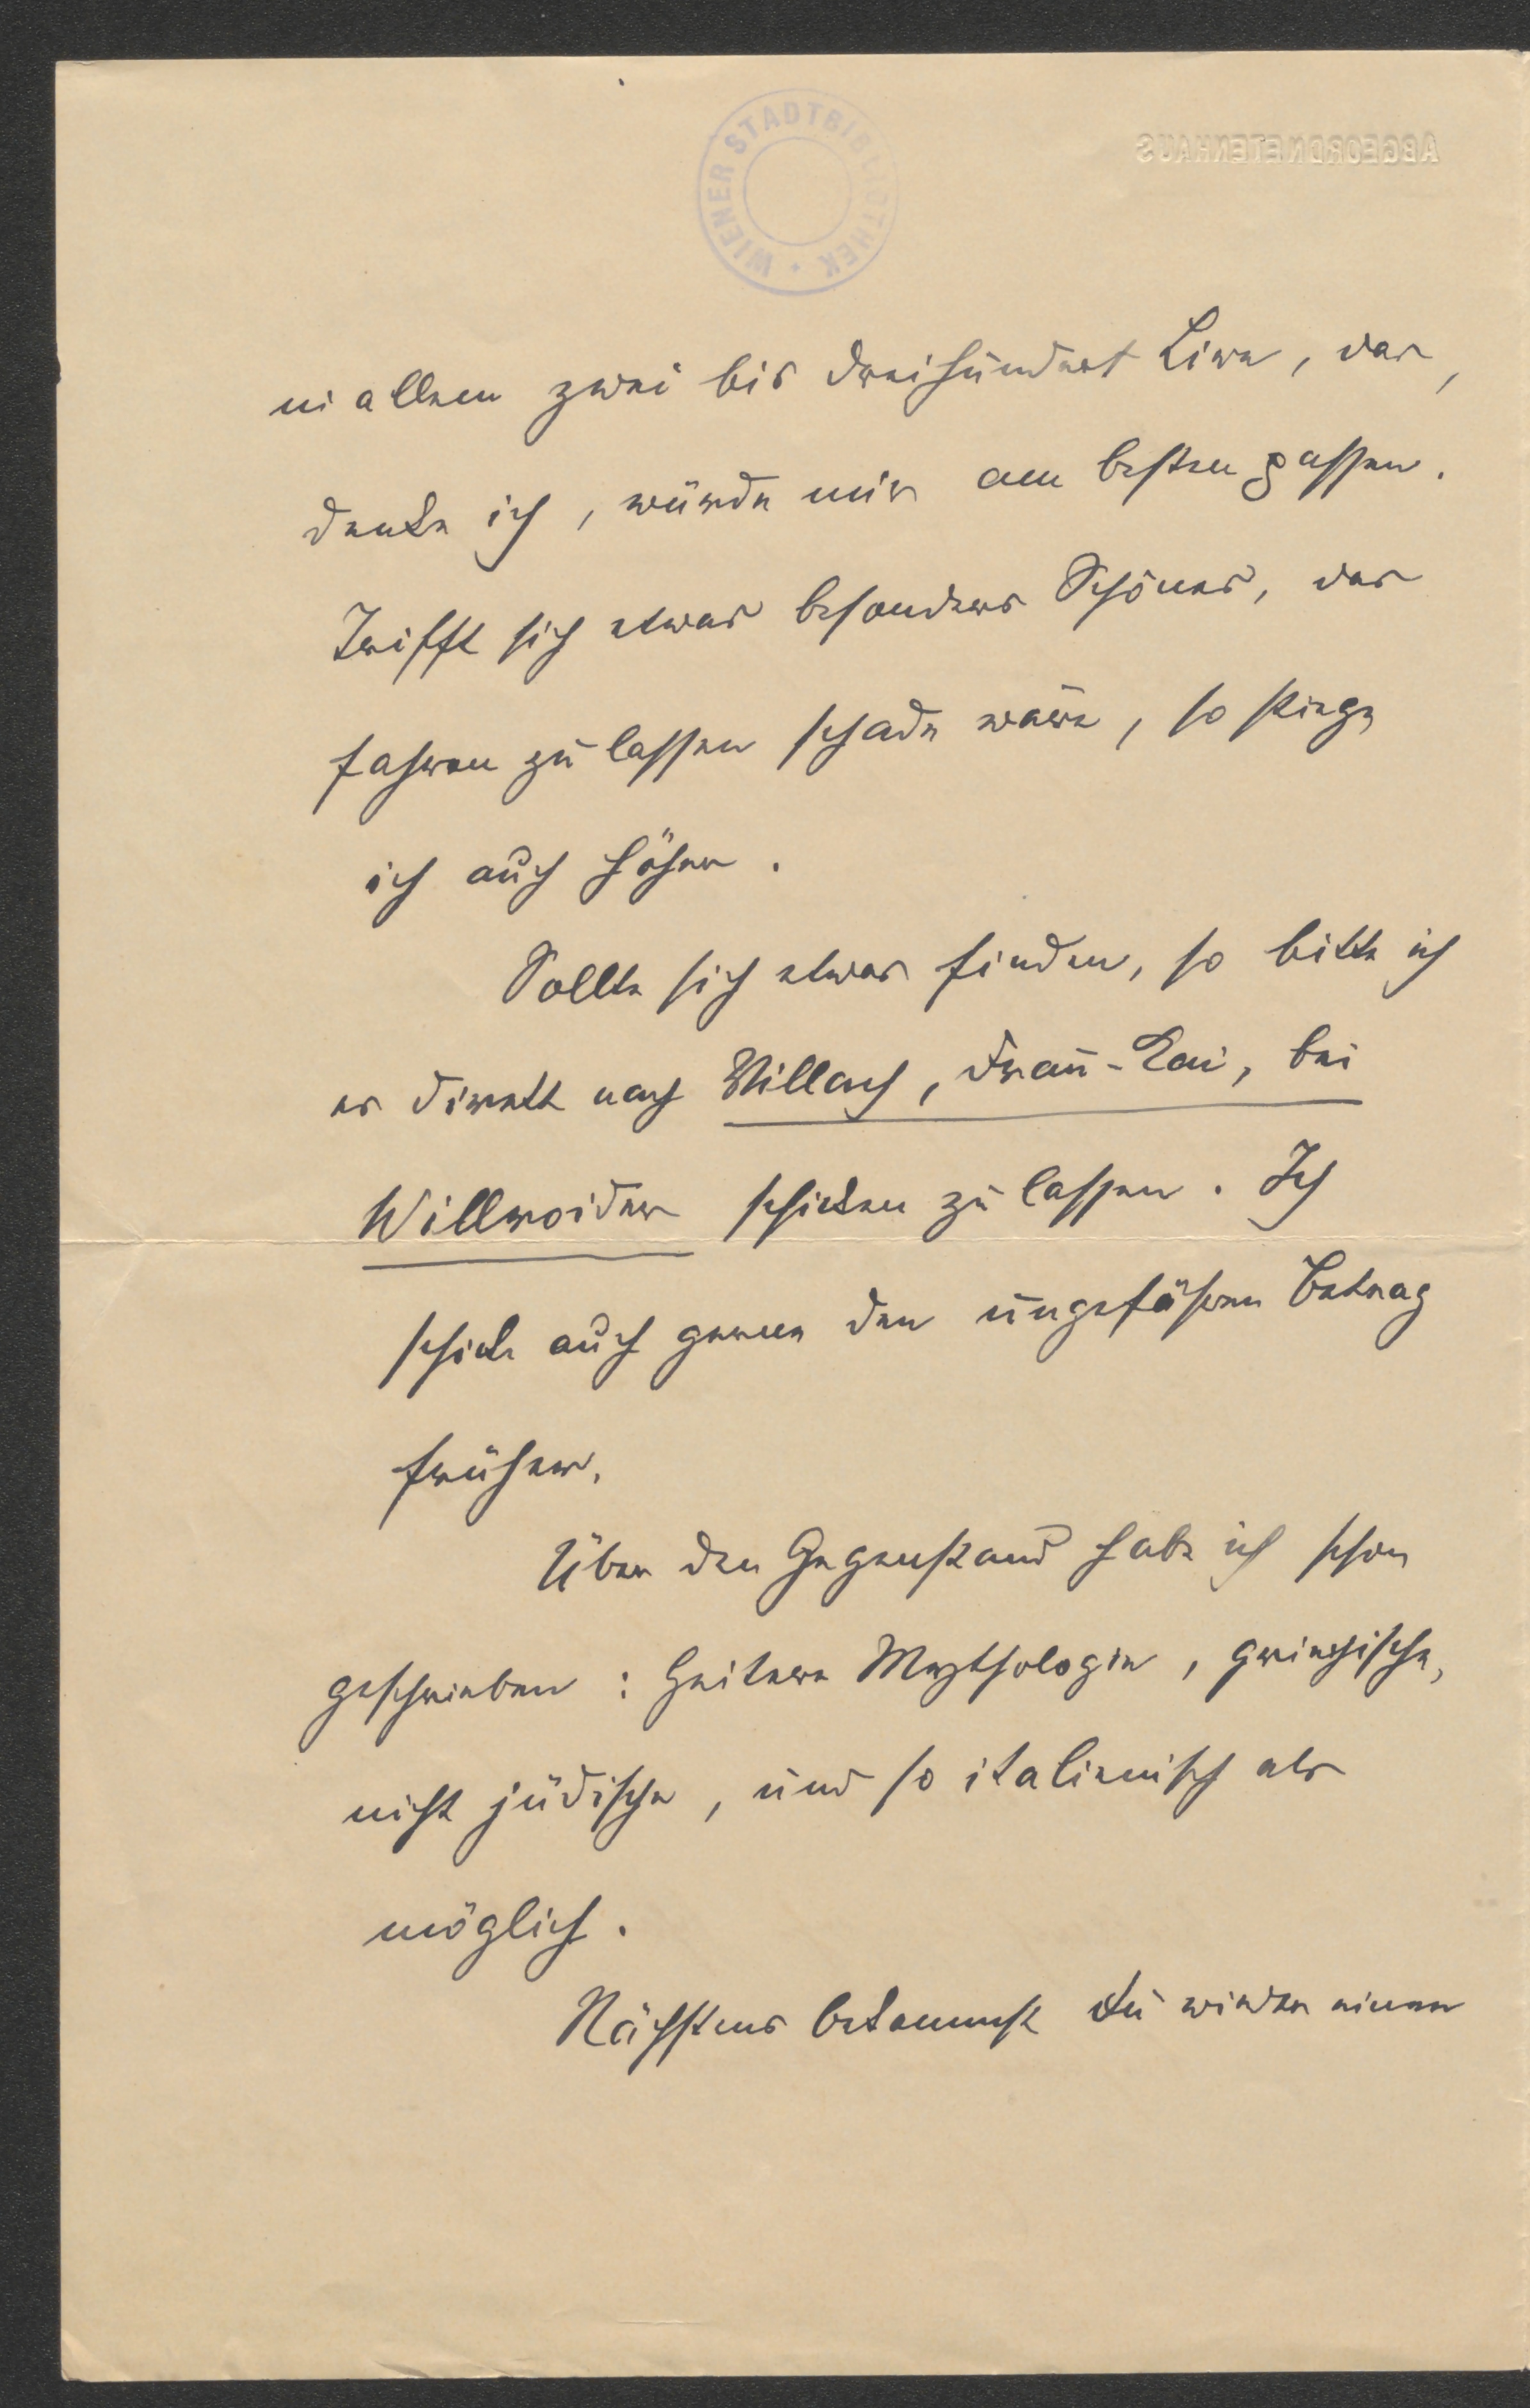 ABGEORDNETENHAUS
WIENER STADTBIBLIOTHEK
in allem zwei bis dreihundert Lire, das,
denke ich, würde mir am besten passen.
Trifft sich etwas besonders Schönes, das
fahren zu lassen schade wäre, so stiege
ich auch höher.
Sollte sich etwas finden, so bitte ich
es direkt nach Villach, Drau-Lai, bei
Willroider schicken zu lassen. Ich
schicke auch gerne den ungefähren Betrag
früher.
Über den Gegenstand habe ich schon
geschrieben: Heitere Mythologie, griechische,
nicht jüdische, und so italienisch als
möglich.
Nächstens bekommst Du wieder einen